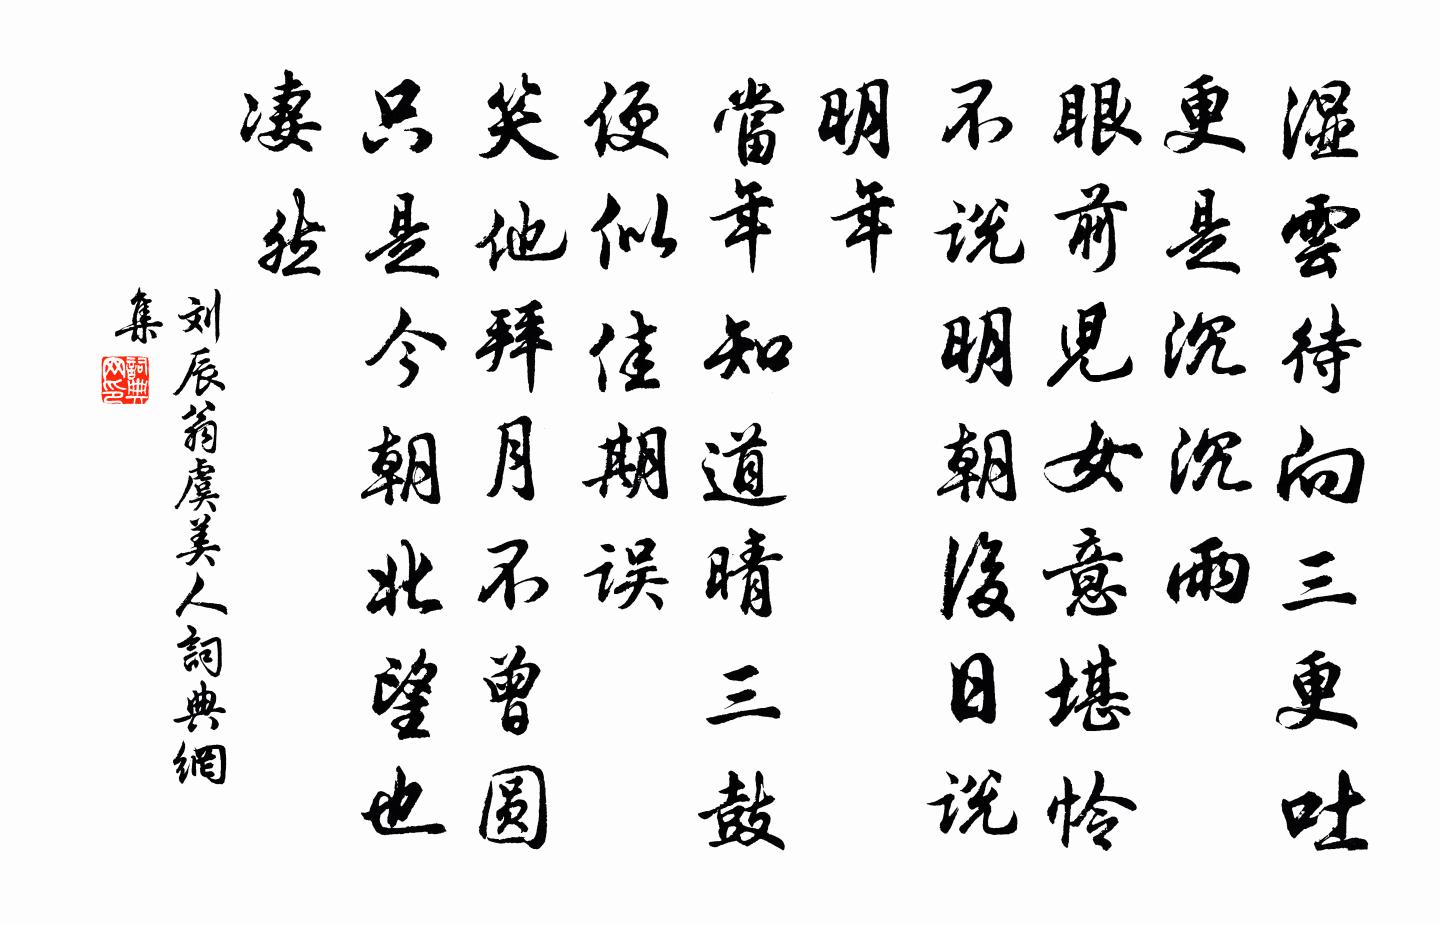 湿雲待向三更吐
更是沉沉雨
眼前児女意堪怜
不说明朝後日说
明年
當年知道晴三鼓
便似佳期误
笑他拜月不曾圆
只是今朝北望也
凄然
刘辰翁虞美人詞典網
集
詞典
网印